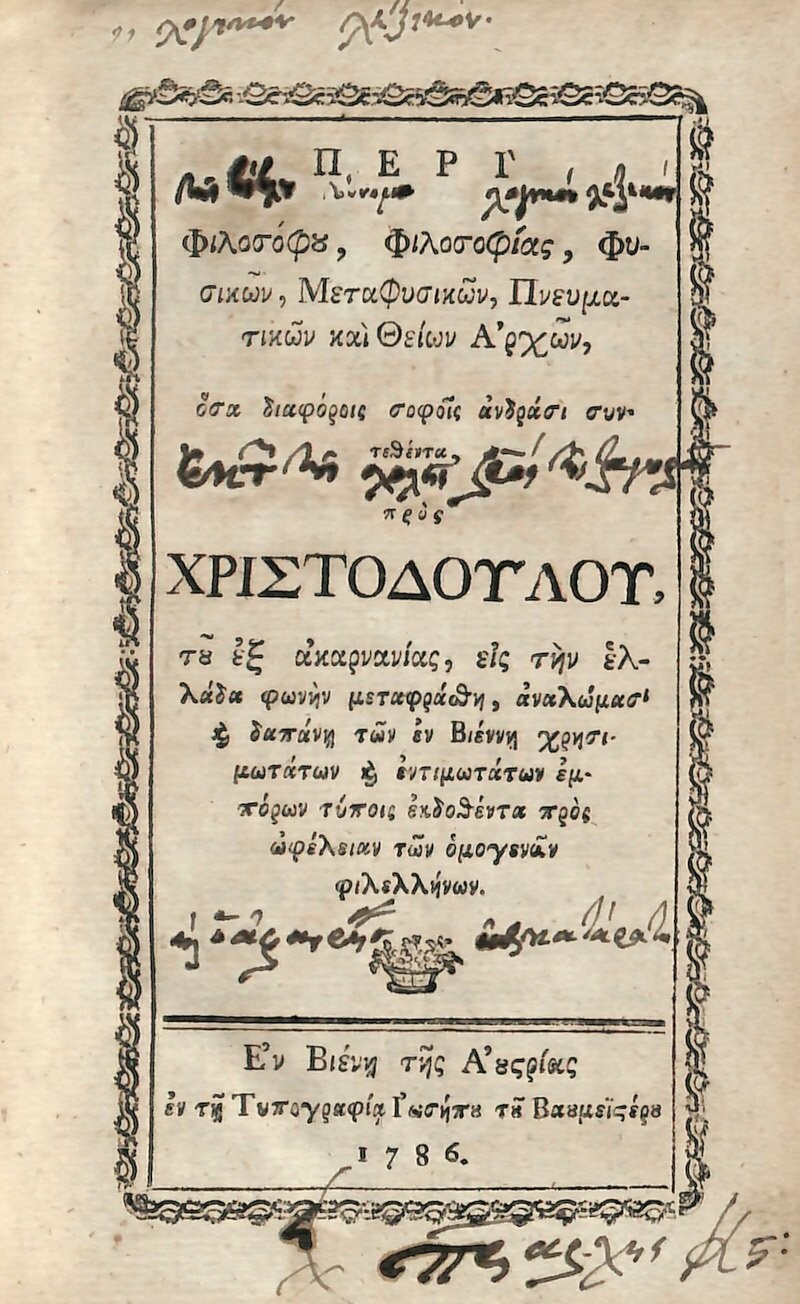 λογικόν λεξικόν.
ΠΕΡῚ
λογικόν λεξικόν
Φιλοσόφȣ, Φιλοσοφίας, Φυ-
σικῶν, Μεταφυσικῶν, Πνευμα-
τικῶν καὶ Θείων Α᾿ρχῶν,
ὅσα διαφόροις σοφοῖς ἀνδράσι συν-
τεθέντα,
πρὸς
ΧΡΙΣΤΟΔΟΥΛΟΥ,
τȣ͂ ἐξ ἀκαρνανίας, εἰς τὴν ἑλ-
λάδα φωνὴν μεταφράσθη, ἀναλώμασι
ϗ δαπάνῃ τῶν ἐν Βιέννῃ χρησι-
μωτάτων ϗ ἐντιμωτάτων ἐμ-
πόρων τύποις ἐκδοθέντα πρὸς
ὠφέλειαν τῶν ὁμογενῶν
φιλελλήνων.
Ε᾿ν Βιένῃ τῆς Α᾿ȣϛρίας
ἐν τῇ Τυπογραφίᾳ Ι᾿ωσήπȣ τȣ͂ Βαȣμεϊϛέρȣ
1786.